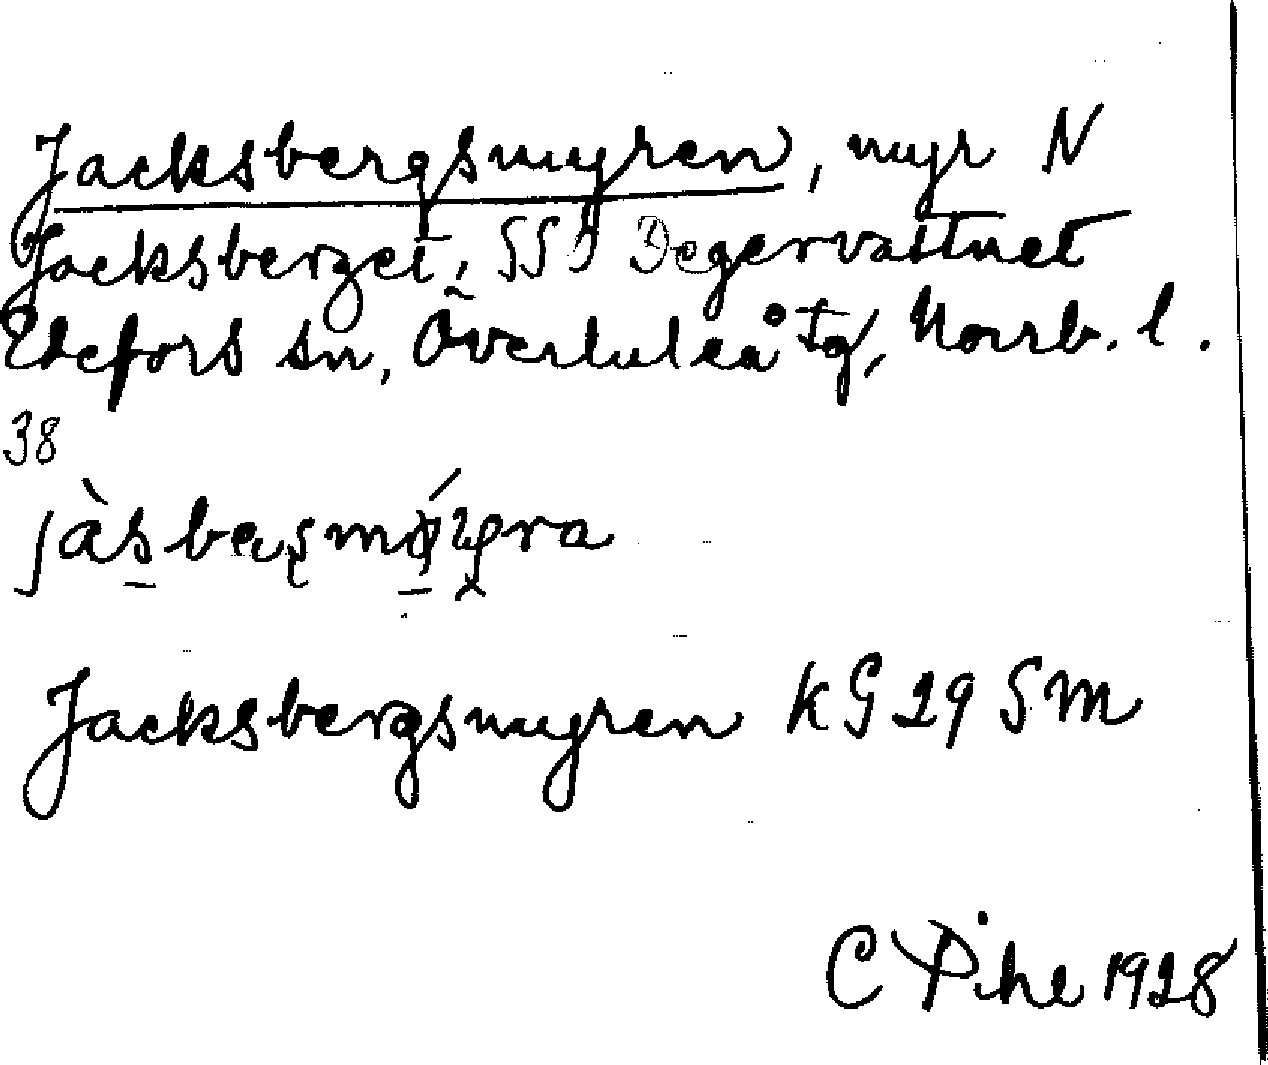 Jacksbergsmyren, myr N
Jacksberget, SSO Degervattnet
Edefors sn, Överluleå tg, Norrb. l.
38
Jacksbergsmyren KG 29 SM
C Pihl 1928